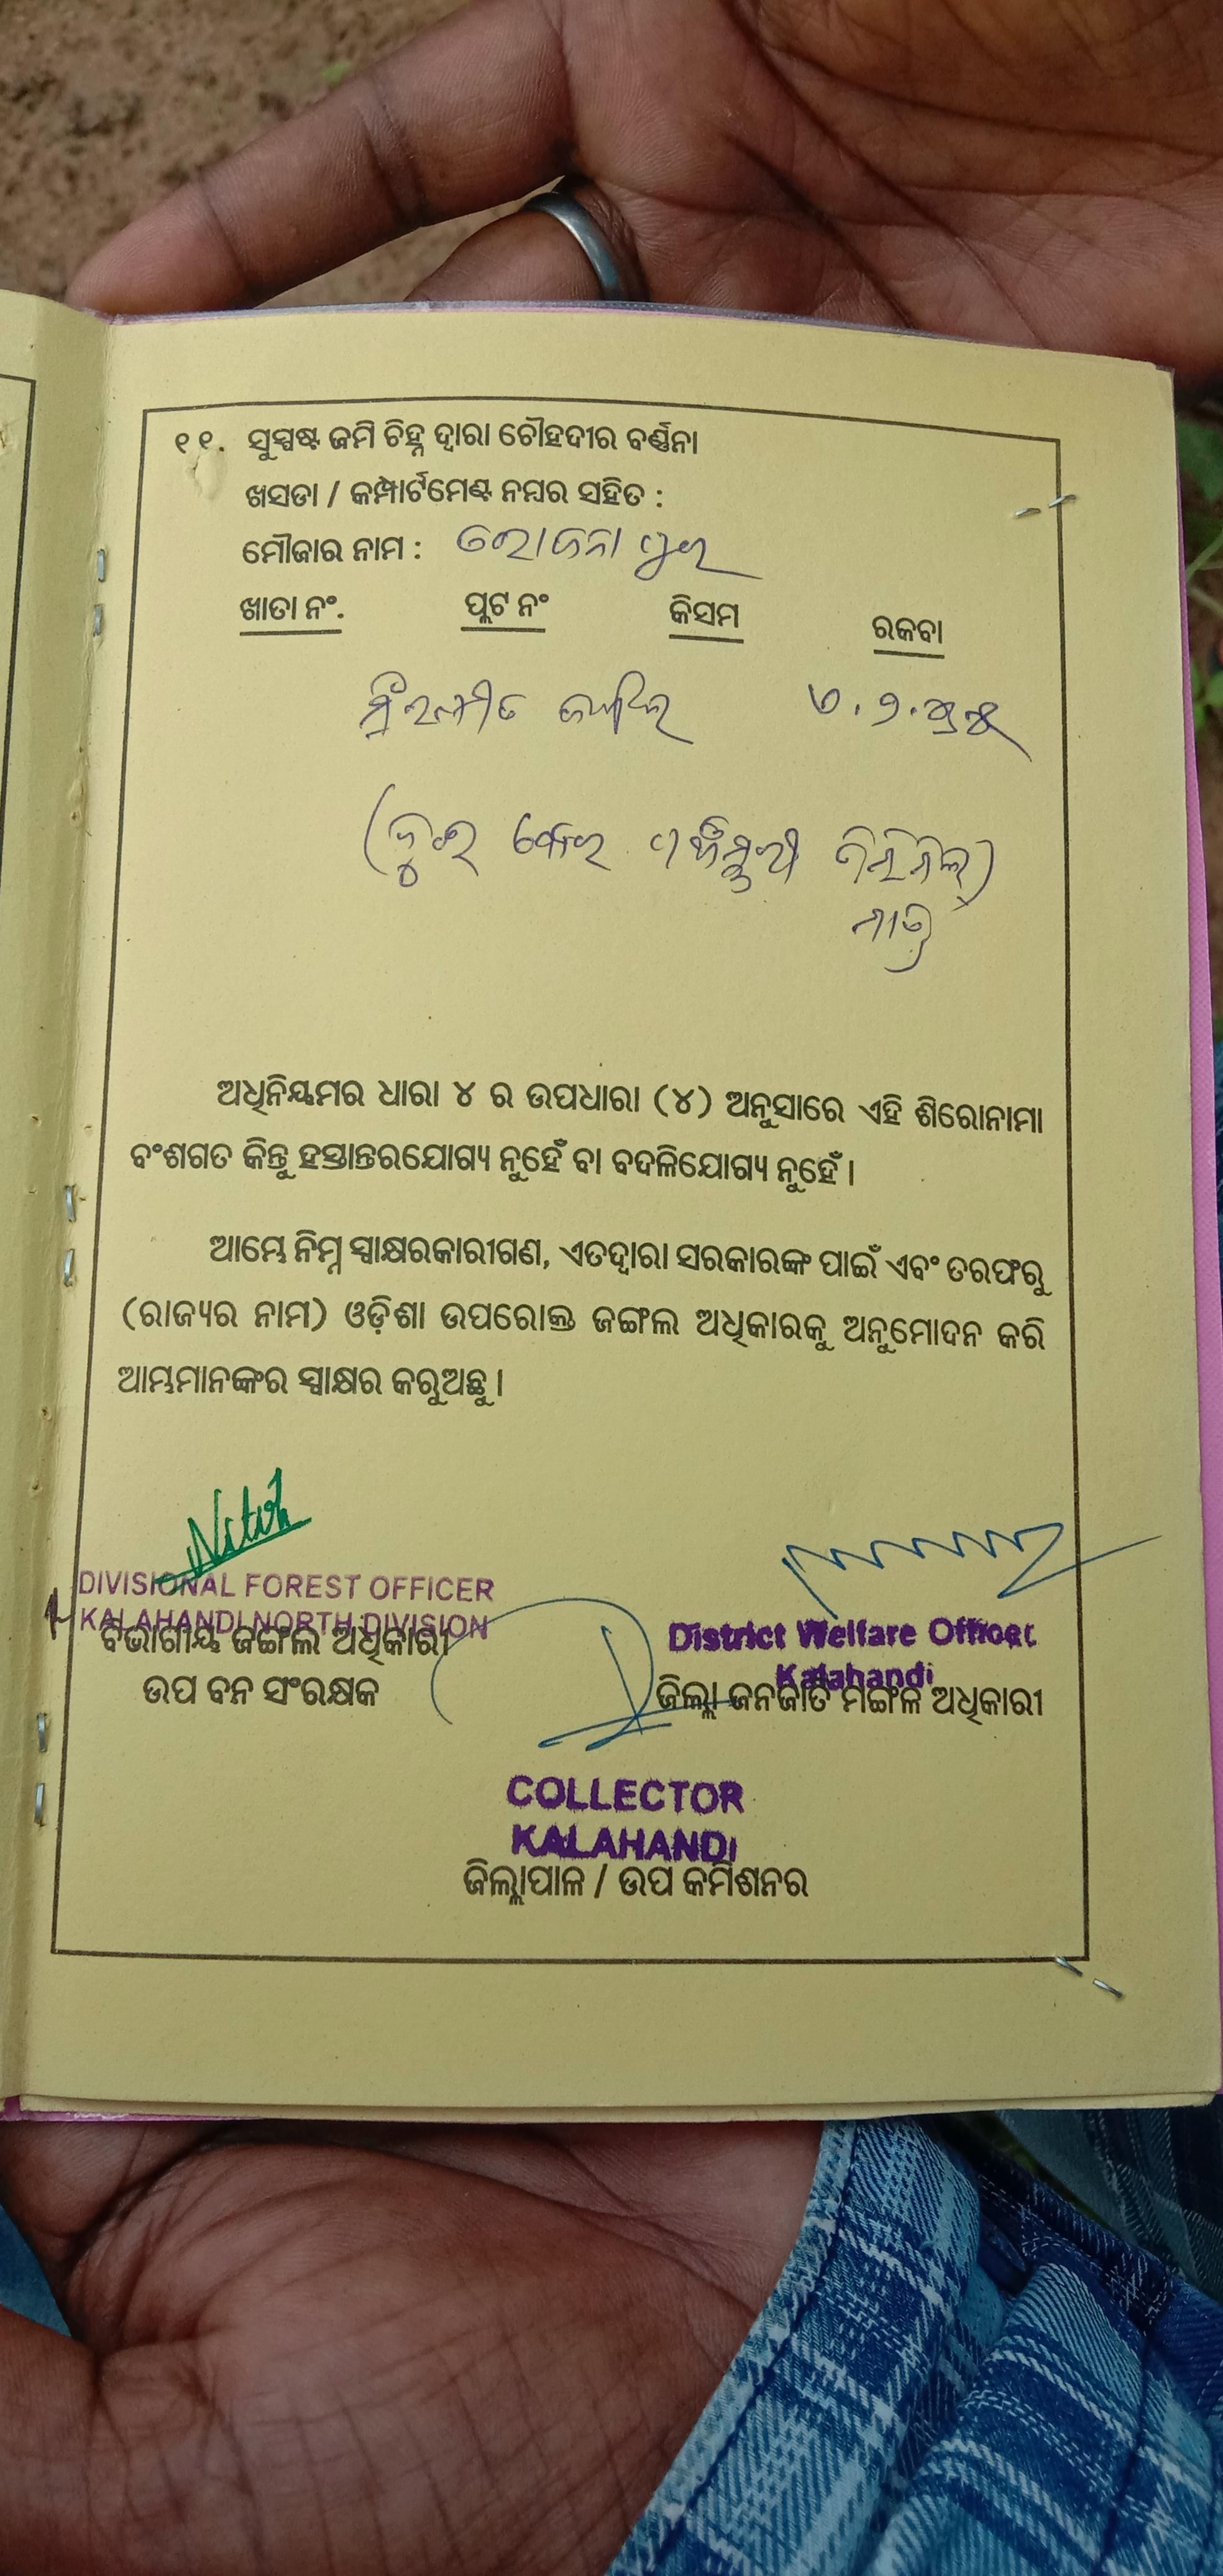 ୧୧. ସୁସ୍ପଷ୍ଟ ଜମି ଚିହ୍ନ ଦ୍ୱାରା ଚୌହଦୀର ବର୍ଣ୍ଣନା
ଖସଡା / କମ୍ପାର୍ଟମେଣ୍ଟ ନମ୍ବର ସହିତ :
ମୌଜାର ନାମ :
ଖାତା ନଂ. ପ୍ଲଟ ନଂ କିସମ ରକବା
ମାତ୍ର
ଅଧିନିୟମର ଧାରା ୪ ର ଉପଧାରା (୪) ଅନୁସାରେ ଏହି ଶିରୋନାମା
ବଂଶଗତ କିନ୍ତୁ ହସ୍ତାନ୍ତରଯୋଗ୍ୟ ନୁହେଁ ବା ବଦଳିଯୋଗ୍ୟ ନୁହେଁ ।
ଆମ୍ଭେ ନିମ୍ନ ସ୍ୱାକ୍ଷରକାରୀଗଣ, ଏତଦ୍ୱାରା ସରକାରଙ୍କ ପାଇଁ ଏବଂ ତରଫରୁ
(ରାଜ୍ୟର ନାମ) ଓଡ଼ିଶା ଉପରୋକ୍ତ ଜଙ୍ଗଲ ଅଧିକାରକୁ ଅନୁମୋଦନ କରି
ଆମ୍ଭମାନଙ୍କର ସ୍ୱାକ୍ଷର କରୁଅଛୁ ।
DIVISIONAL FOREST OFFICER
KALAHANDI NORTH DIVISION
ବିଭାଗୀୟ ଜଙ୍ଗଲ ଅଧିକାରୀ
ଉପ ବନ ସଂରକ୍ଷକ
District Welfare Officer
Kalahandi
ଜିଲ୍ଲା ଜନଜାତି ମଙ୍ଗଳ ଅଧିକାରୀ
COLLECTOR
KALAHANDI
ଜିଲ୍ଲାପାଳ / ଉପ କମିଶନର